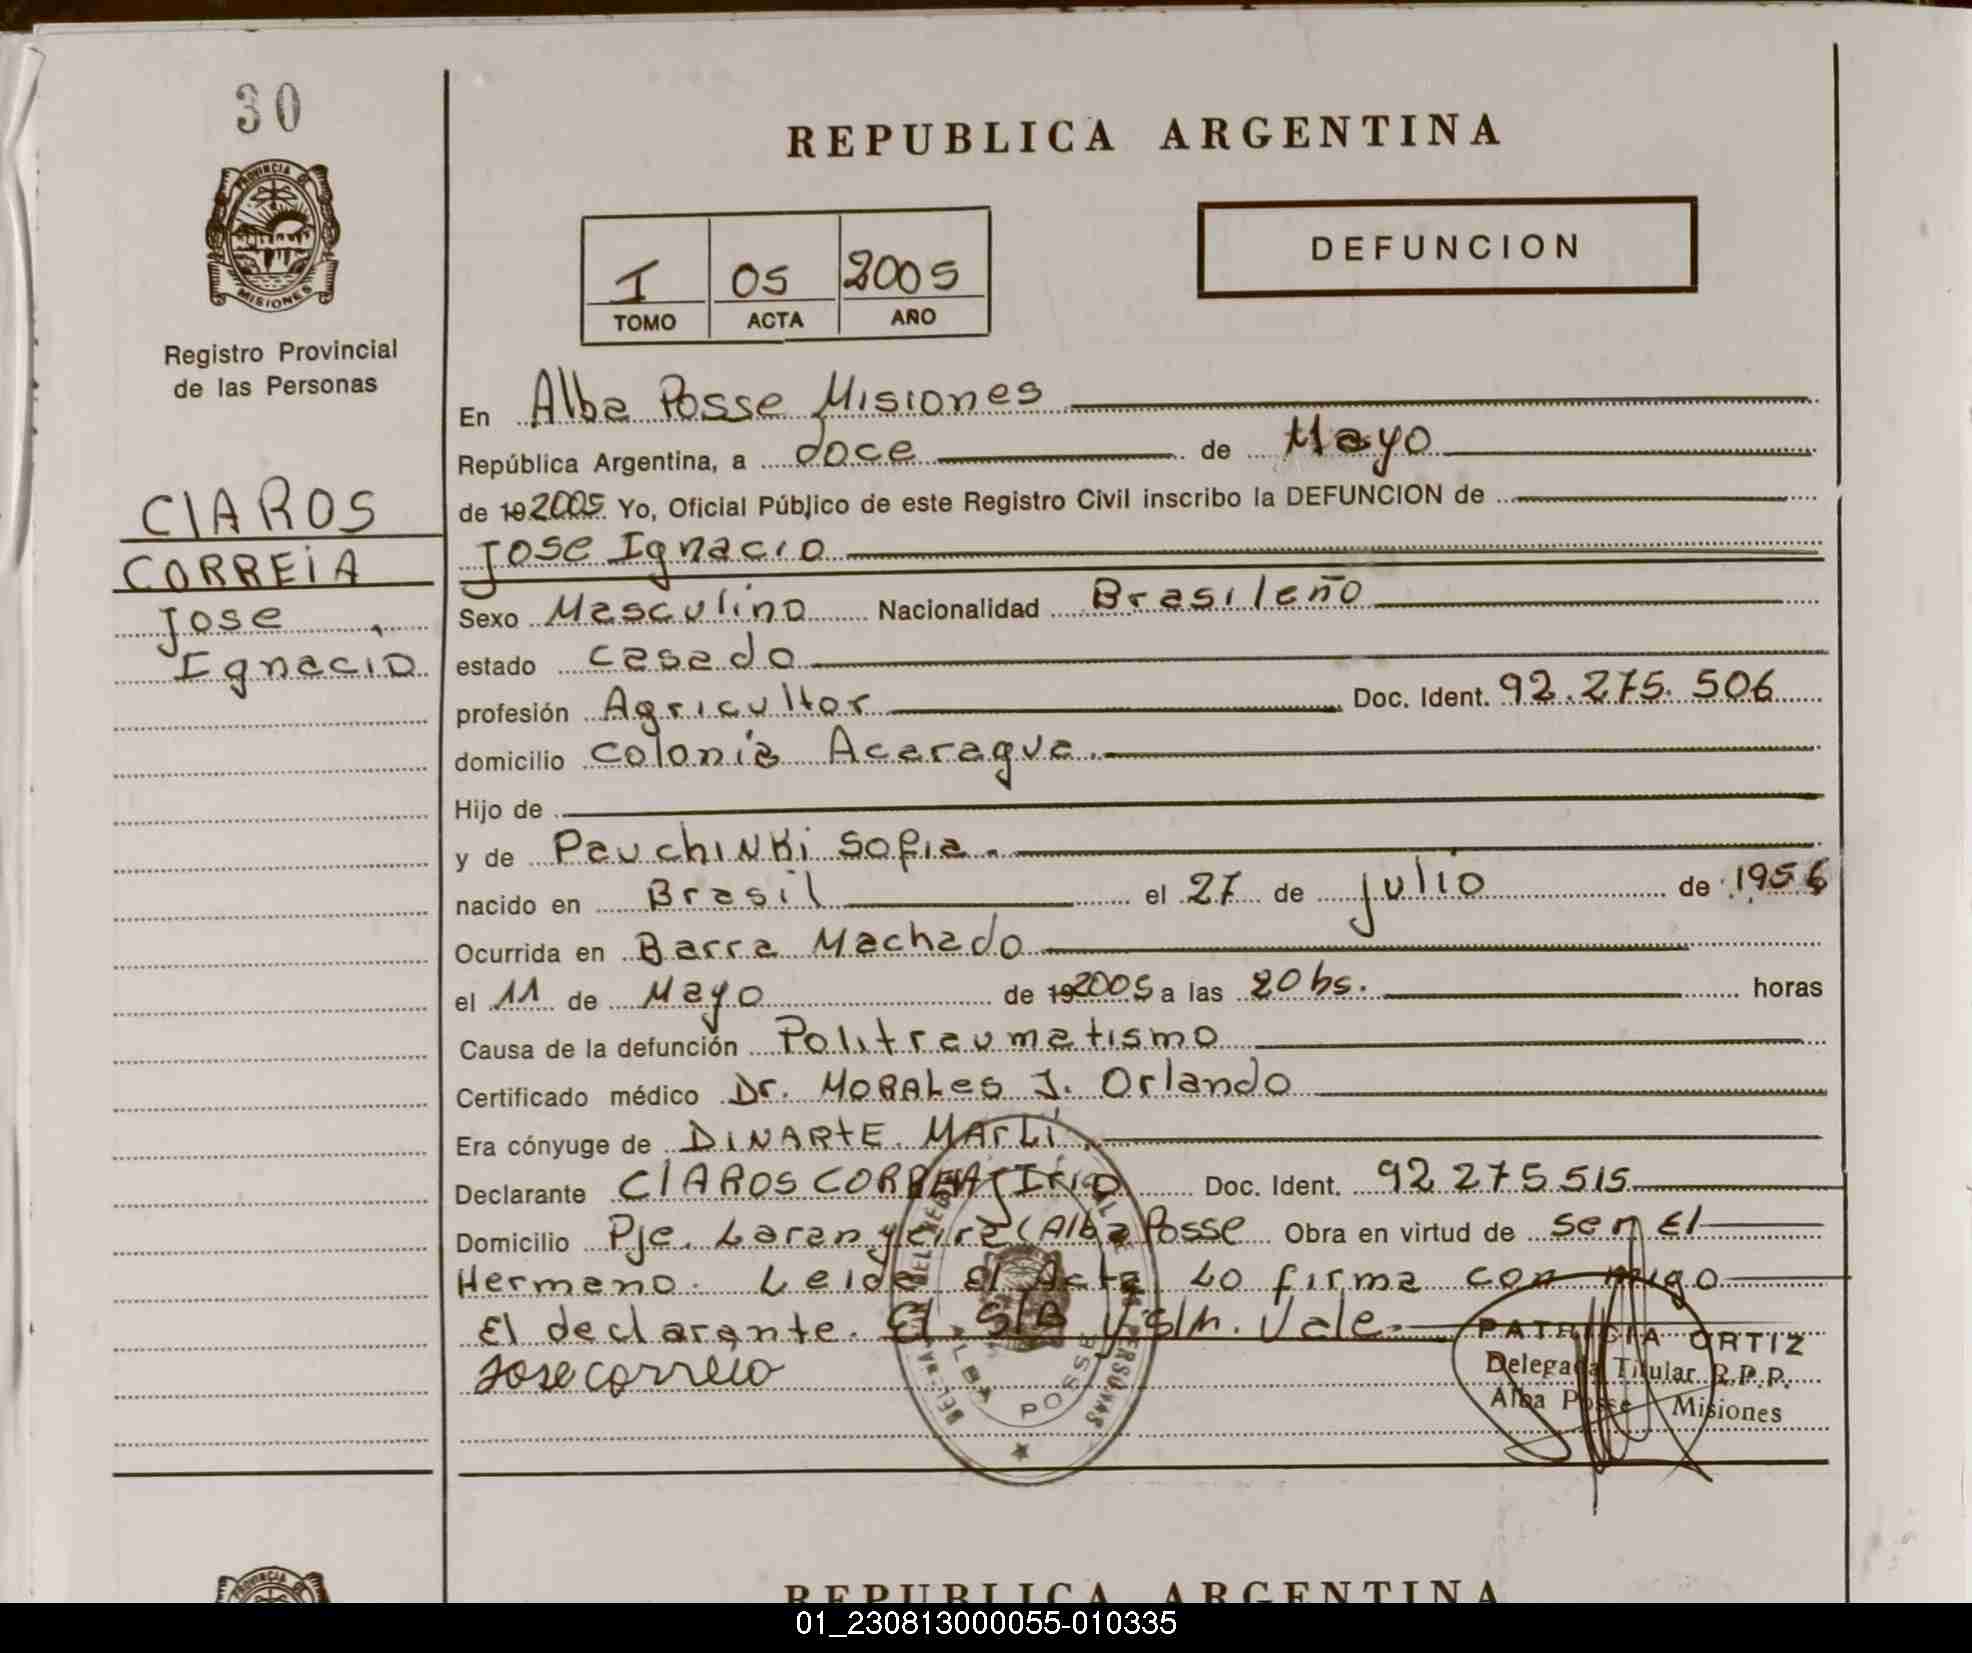 30
PROVINCIA DE
MISIONES
Registro Provincial
de las Personas
CIAROS
CORREIA
Jose
Ignacio
REPUBLICA ARGENTINA
I 05 2005
TOMO ACTA AÑO
DEFUNCION
En Alba Posse Misiones
República Argentina, a doce de Mayo
de 19 2005 Yo, Oficial Público de este Registro Civil inscribo la DEFUNCION de
Jose Ignacio
Sexo Masculino Nacionalidad Brasileño
estado casado
profesión Agricultor Doc. Ident. 92.275.506
domicilio colonia Acaragua.
Hijo de
y de Pauchinki Sofia.
nacido en Brasil el 27 de julio de 1956
Ocurrida en Barra Machado
el 11 de Mayo de 19 2005 a las 20 hs. horas
Causa de la defunción Politraumatismo
Certificado médico Dr. MORALes J. Orlando
Era cónyuge de DINARtE MArLi
Declarante CIAROS CORREIA Doc. Ident. 92 275 515
Domicilio Pje. Laranyeira (Alba Posse Obra en virtud de ser El
Hermano. Leida El Acta Lo firma con migo
El declarante. El S/B y S/n. Vale.
Jose correia
ALBA POSSE
PATRICIA ORTIZ
Delegada Titular R.P.P.
Alba Posse Misiones
PROVINCIA DE
REPUBLICA ARGENTINA
01_230813000055-010335